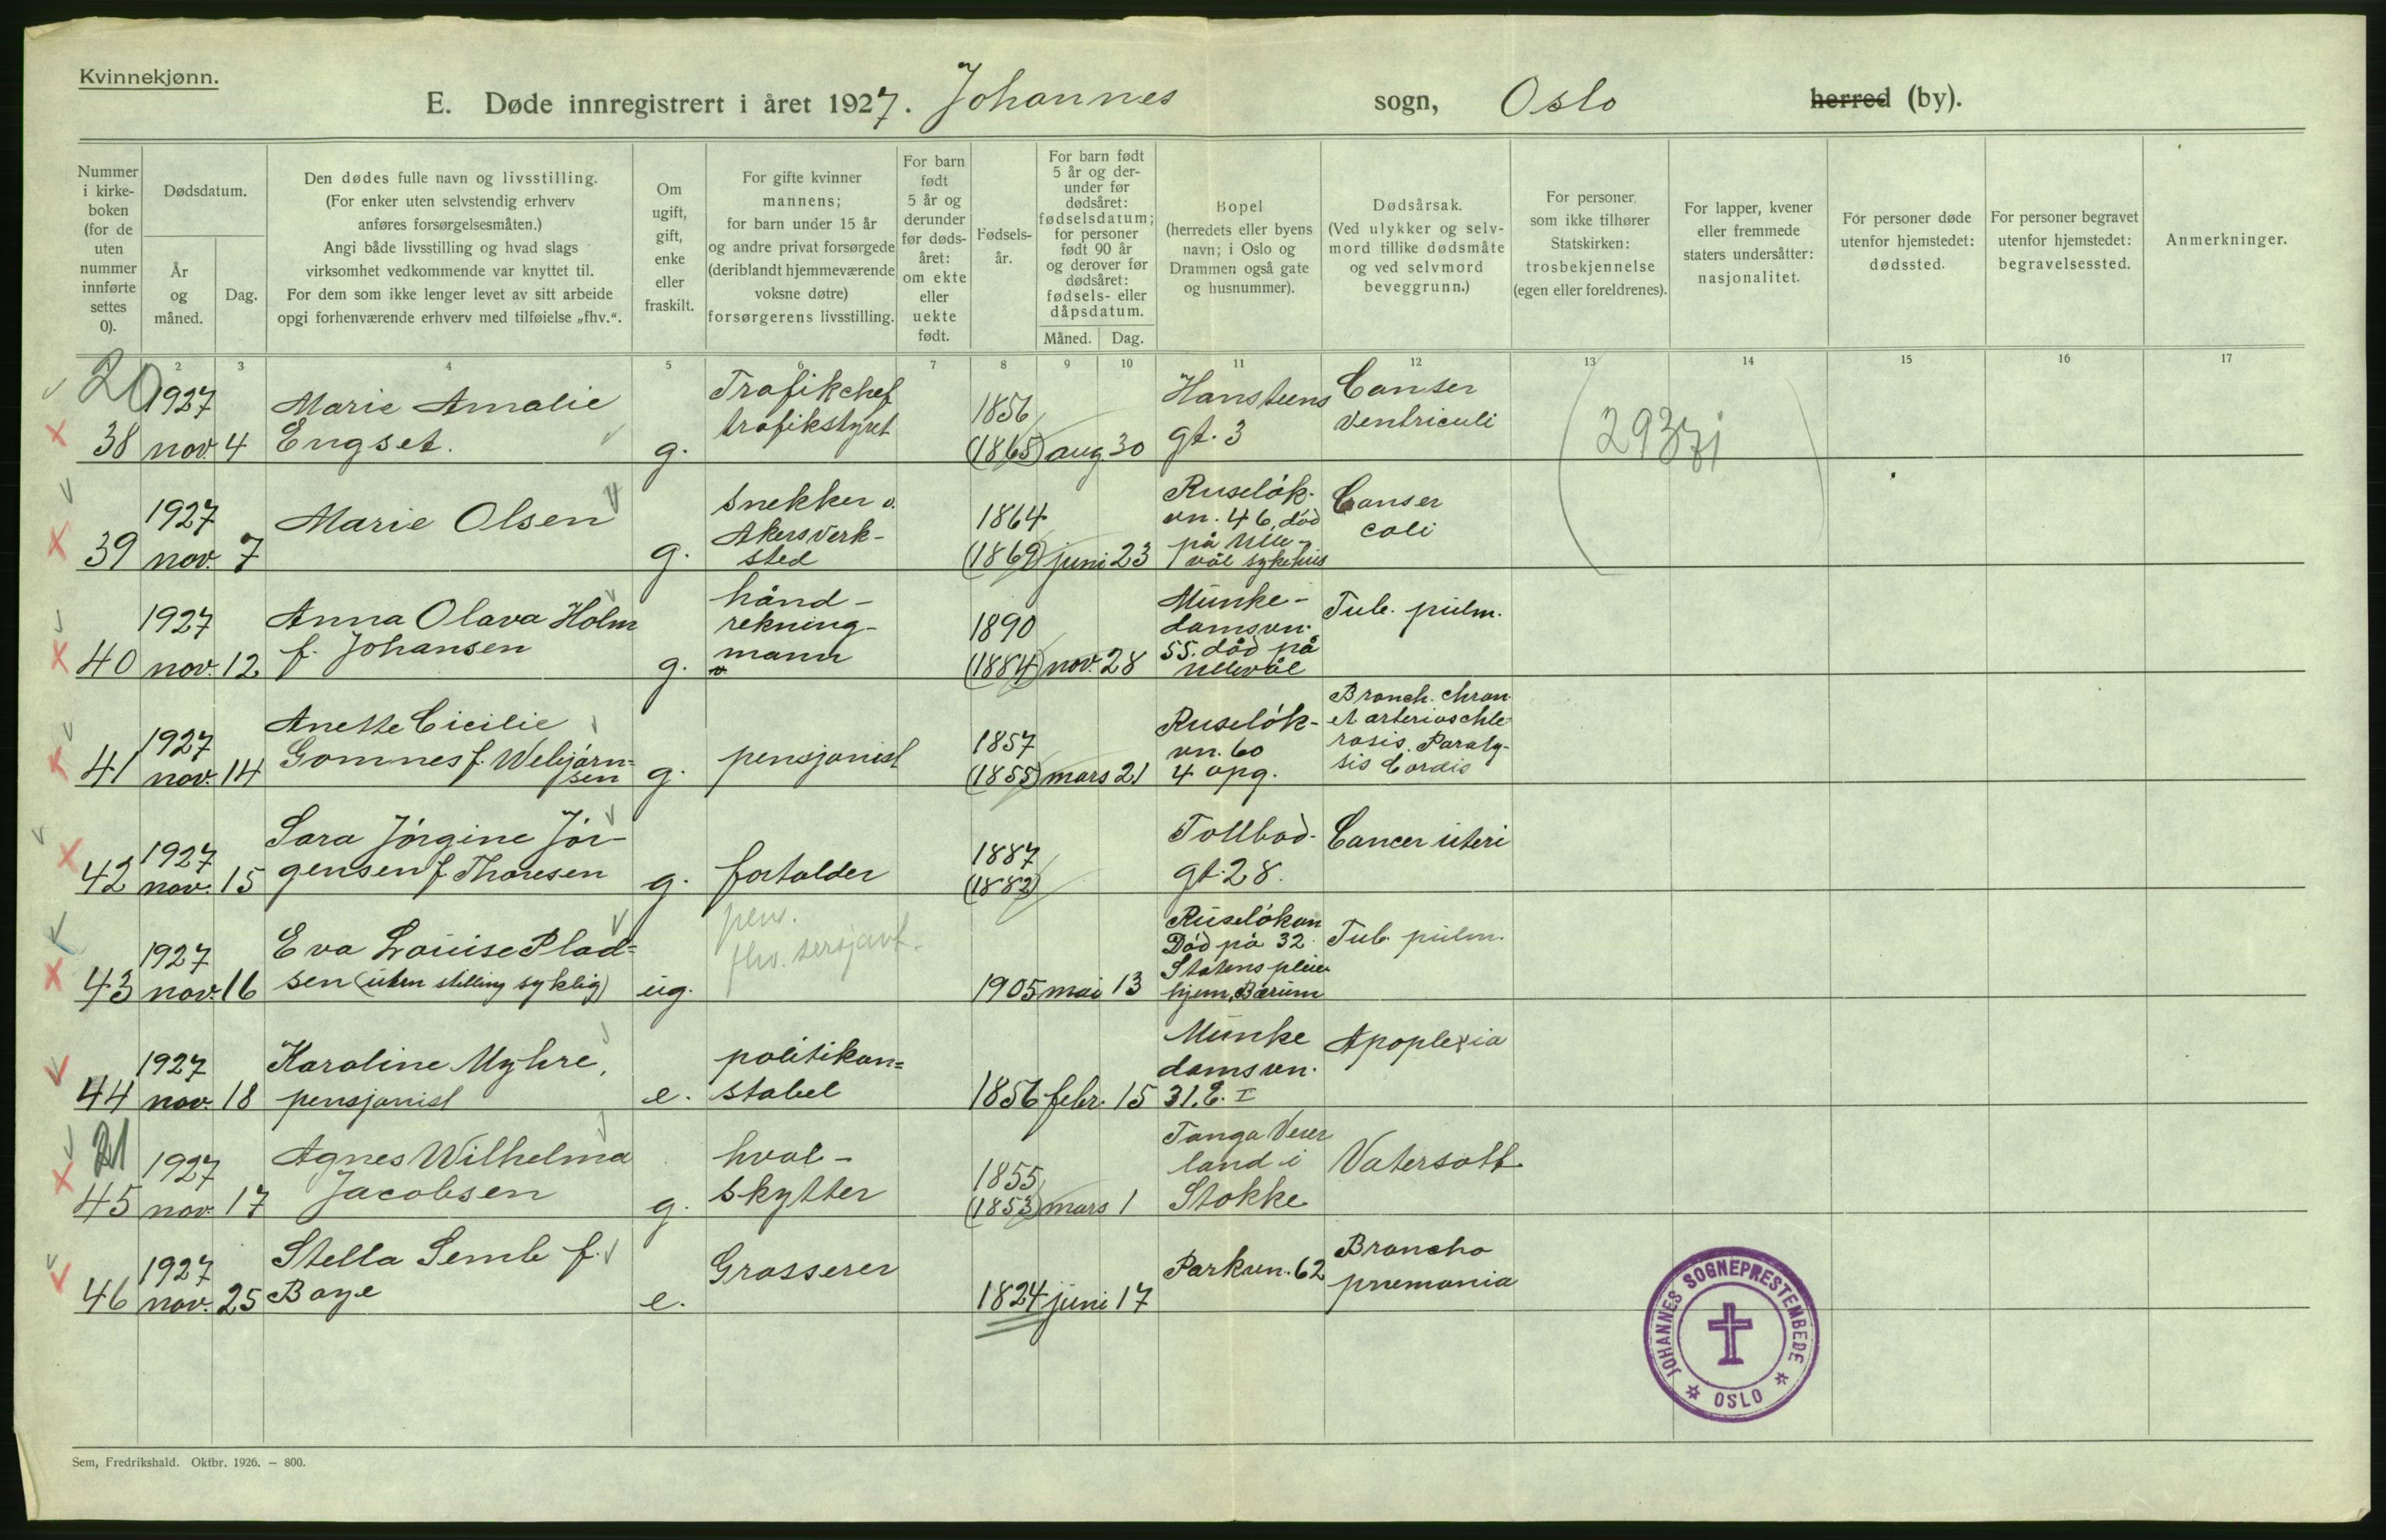 Kvinnekjønn.
E. Døde innregistrert i året 1927. Johannes sogn, Oslo herred (by).
Nummer i kirke-boken (for de uten nummer innførte settes 0).
Dødsdatum.
År og måned.
Dag.
Den dødes fulle navn og livsstilling.
(For enker uten selvstendig erhverv
anføres forsørgelsesmåten.)
Angi både livsstilling og hvad slags
virksomhet vedkommende var knyttet til.
For dem som ikke lenger levet av sitt arbeide
opgi forhenværende erhverv med tilføielse „fhv.“.
Om ugift, gift, enke eller fraskilt.
For gifte kvinner
mannens;
for barn under 15 år
og andre privat forsørgede
(deriblandt hjemmeværende
voksne døtre)
forsørgerens livsstilling.
For barn født 5 år og derunder før døds-året: om ekte eller uekte født.
Fødsels-år.
For barn født 5 år og der-under før dødsåret: fødselsdatum; for personer født 90 år og derover før dødsåret: fødsels- eller dåpsdatum.
Måned. Dag.
Bopel
(herredets eller byens
navn; i Oslo og
Drammen også gate
og husnummer).
Dødsårsak.
(Ved ulykker og selv-
mord tillike dødsmåte
og ved selvmord
beveggrunn.)
For personer
som ikke tilhører
Statskirken:
trosbekjennelse
(egen eller foreldrenes).
For lapper, kvener
eller fremmede
staters undersåtter:
nasjonalitet.
For personer døde
utenfor hjemstedet:
dødssted.
For personer begravet
utenfor hjemstedet:
begravelsessted.
Anmerkninger.
2 3 4 5 6 7 8 9 10 11 12 13 14 15 16 17
20
38 1927 nov. 4 Marie Amalie Engset. g. Trafikchef trafikstyret 1856 (1865) aug 30 Hansteens gt. 3 Canser ventriculi
2937j
39 1927 nov. 7 Marie Olsen g. Snekker v. Akersverk-sted 1864 (1869) juni 23 Ruseløk-vn. 46, død på Ulle-vål sykehus Canser coli
40 1927 nov. 12 Anna Olava Holm f. Johansen g. hånd-rekning-mann 1890 (1884) nov. 28 Munke-damsvn. 55. død på Ullevål Tub. pulm.
41 1927 nov. 14 Anette Cicilie Gomnes f. Webjørn-sen g. pensjonist 1857 (1855) mars 21 Ruseløk-vn. 60 4 opg. Bronch. chron. et arterioschle-rosis. Paraly-sis Cordis
42 1927 nov. 15 Sara Jørgine Jør-gensen f. Thoresen g. fortolder 1887 (1882) Tollbod-gt. 28. Cancer uteri
43 1927 nov. 16 Eva Louise Plad=sen (uten stilling syklig) ug. pens. fhv. sersjant. 1905 mai 13 Ruseløkvn 32. Død på Statens pleiehjem, Bærum Tub. pulm.
44 1927 nov. 18 Karoline Myhre, pensjonist e. politikon=stabel 1856 febr. 15 Munke damsvn. 31. I Apoplexia
21
45 1927 nov. 17 Agnes Wilhelma Jacobsen g. hval-skytter 1855 (1853) mars 1 Tanga land i Stokke Vatersott
46 1927 nov. 25 Stella Semb f. Boye e. Grosserer 1824 juni 17 Parkvn. 62 Broncho pnemonia
JOHANNES SOGNEPRESTEMBEDE
OSLO
Sem, Fredrikshald. Oktbr. 1926. — 800.